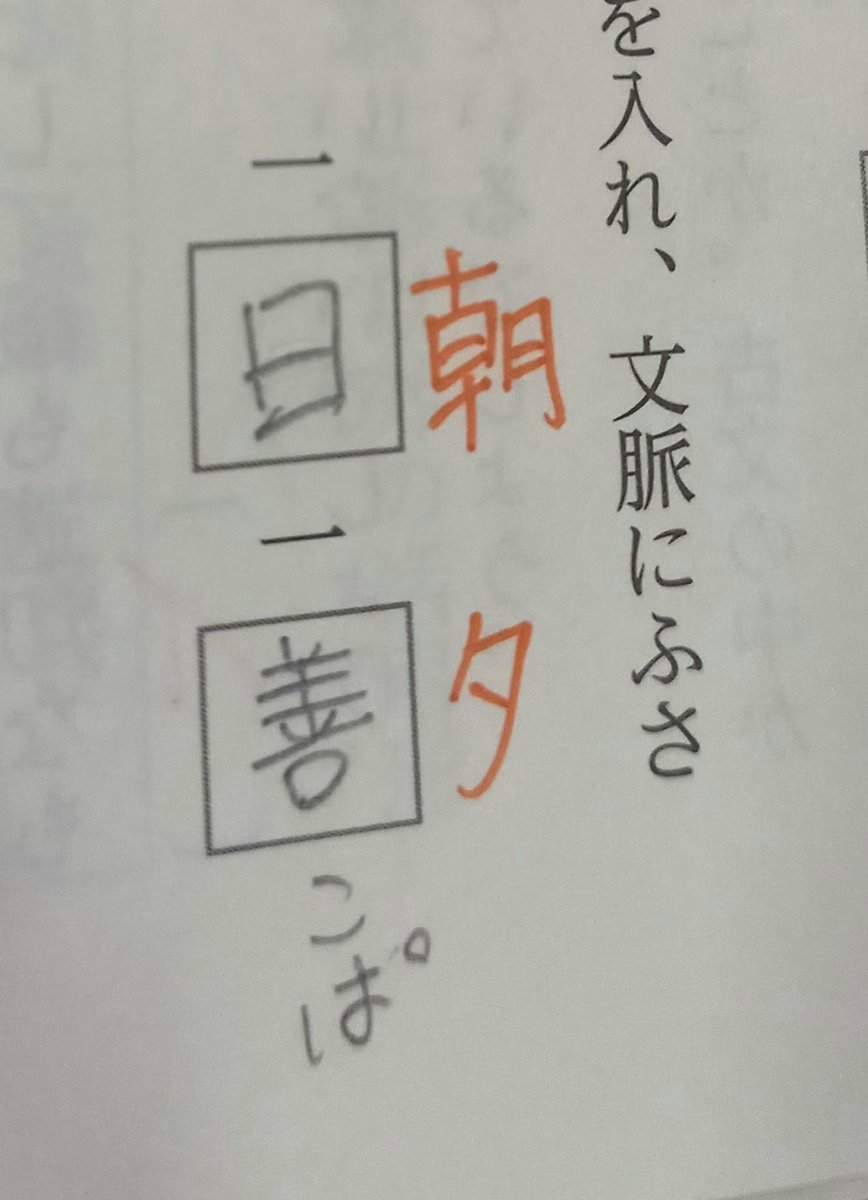 を入れ、文脈にふさ
朝
夕
一日一善
こぱ